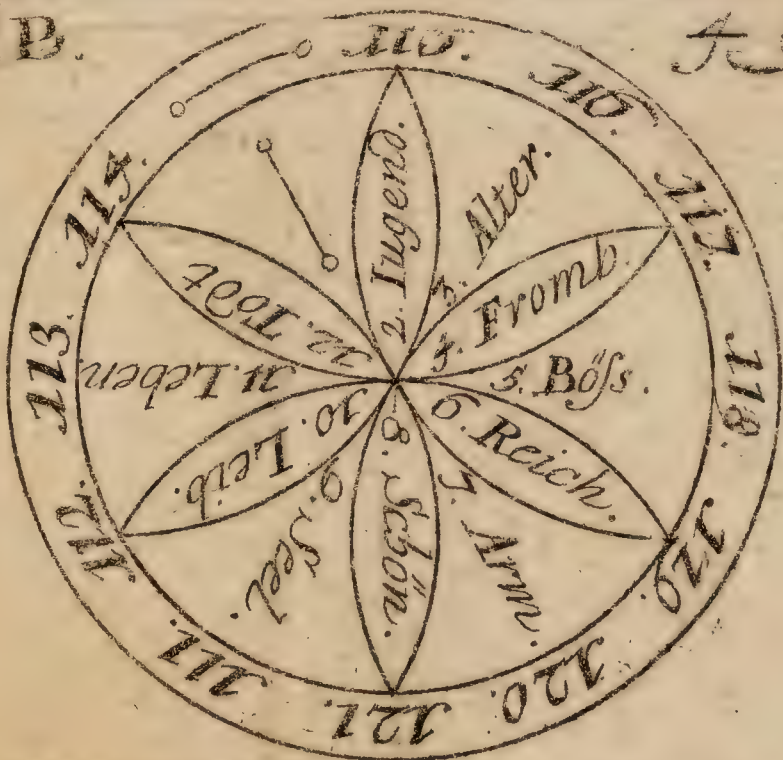 B.
115.
116.
117.
118.
119.
120.
121.
111.
112.
113.
114.
2. Iugend.
3. Alter.
4. Fromb.
5. Böſs.
6. Reich.
7. Arm.
8. Schön.
9. Seel.
10. Leib.
11. Leben
12. Todt